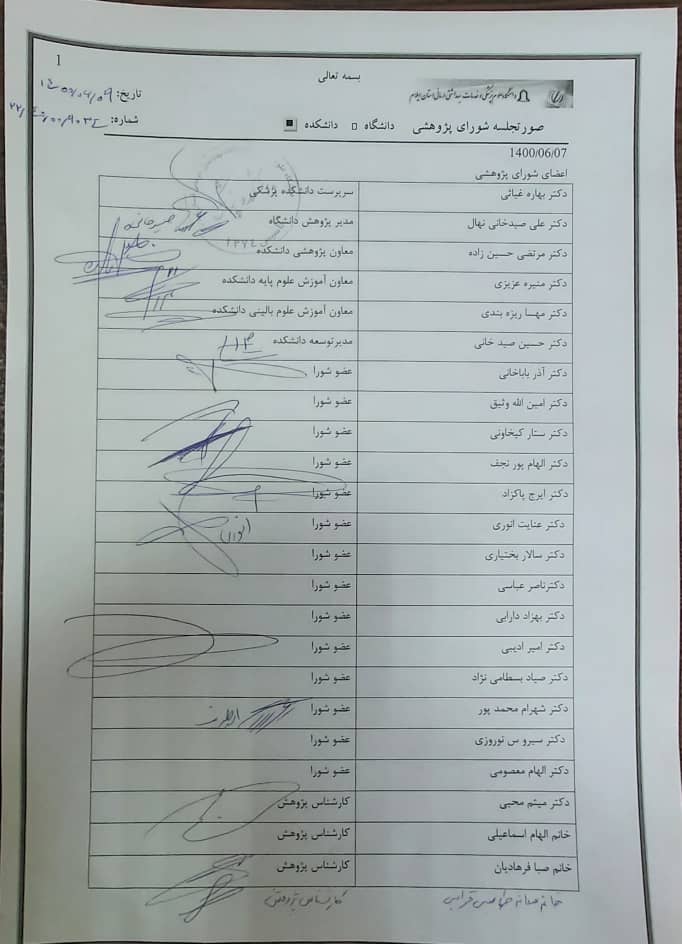 1
بسمه تعالی
دانشگاه علوم پزشکی و خدمات بهداشتی درمانی استان ایلام
تاریخ:
شماره:
صورتجلسه شورای پژوهشی دانشگاه □ دانشکده ▣
1400/06/07
اعضای شورای پژوهشی
دکتر بهاره غیاثی سرپرست دانشکده پزشکی
دکتر علی صیدخانی نهال مدیر پژوهش دانشگاه
دکتر مرتضی حسین زاده معاون پژوهشی دانشکده
دکتر منیره عزیزی معاون آموزش علوم پایه دانشکده
دکتر مهسا ریزه بندی معاون آموزش علوم بالینی دانشکده
دکتر حسین صید خانی مدیرتوسعه دانشکده
دکتر آذر باباخانی عضو شورا
دکتر امین الله وثیق عضو شورا
دکتر ستار کیخاونی عضو شورا
دکتر الهام پور نجف عضو شورا
دکتر ایرج پاکزاد عضو شورا
دکتر عنایت انوری عضو شورا
دکتر سالار بختیاری عضو شورا
دکترناصر عباسی عضو شورا
دکتر بهزاد دارابی عضو شورا
دکتر امیر ادیبی عضو شورا
دکتر صیاد بسطامی نژاد عضو شورا
دکتر شهرام محمد پور عضو شورا
دکتر سیرو س نوروزی عضو شورا
دکتر الهام معصومی عضو شورا
دکتر میثم محبی کارشناس پژوهش
خانم الهام اسماعیلی کارشناس پژوهش
خانم صبا فرهادیان کارشناس پژوهش
خانم کارشناس پژوهش